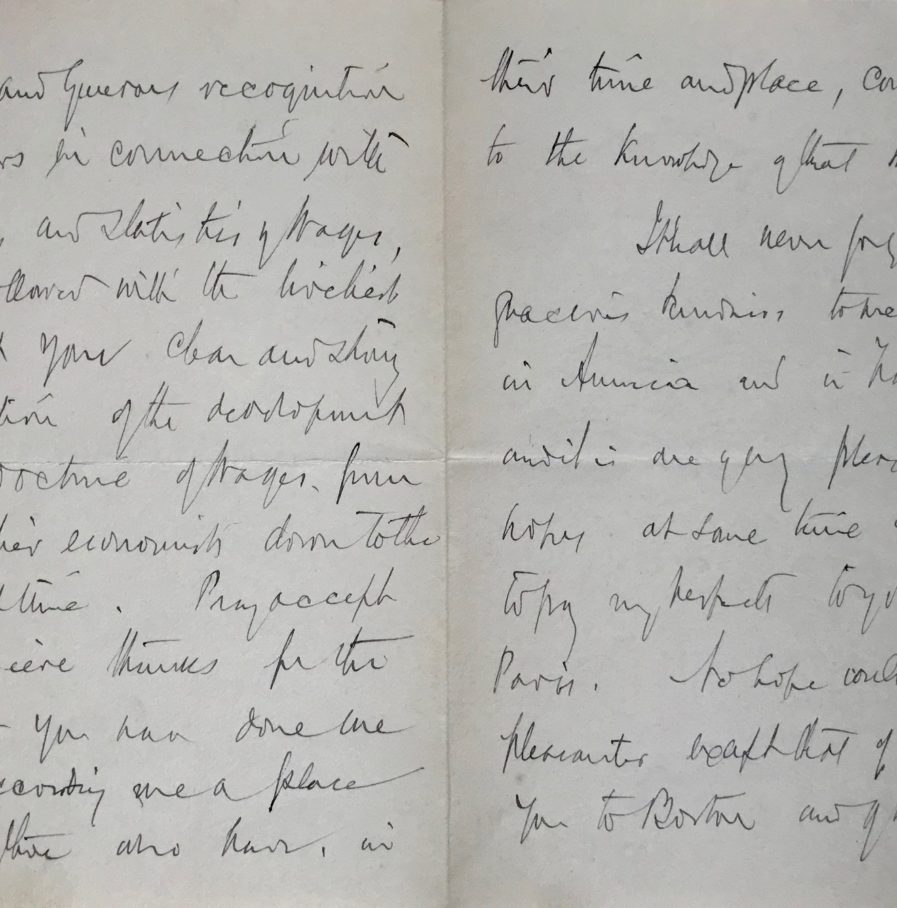 and generous recognition
in connection with
and statistics of Wages,
followed with the liveliest
your clear and strong
of the development
doctrine of Wages, from
economists down to the
time. Pray accept
thanks for the
you have done me
according me a place
those who have, in
their time and place, con
to the knowledge of that
I shall never forg
gracious kindness to me
in America and in
and it is one of my pleas
hopes at some time
to pay my respects to yo
Paris. No hope coul
pleasanter except that of
you to Boston and of